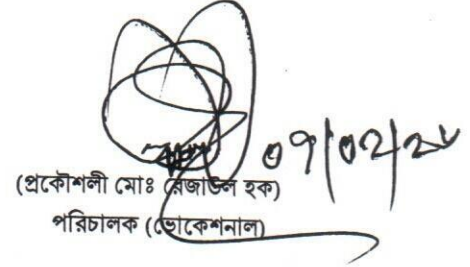 ০৭/০২/২৮
(প্রকৌশলী মোঃ রেজাউল হক)
পরিচালক (ভোকেশনাল)